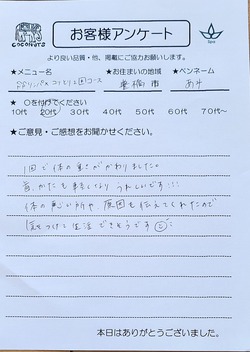 COCONUTS
お客様アンケート
より良い品質・他、掲載にご協力お願いします。
★メニュー名 ★お住まいの地域 ★ペンネーム
コース 豊橋市 あみ
★ ○を付けてください
10代 20代 30代 40代 50代 60代 70代～
★ご意見・ご感想をお聞かせください。
1回で体の重さがかわりました。
首、かたも軽くなり うれしいです!!!
体の悪い所や 原因も伝えてくれたので
気をつけて生活できそうです
本日はありがとうございました。